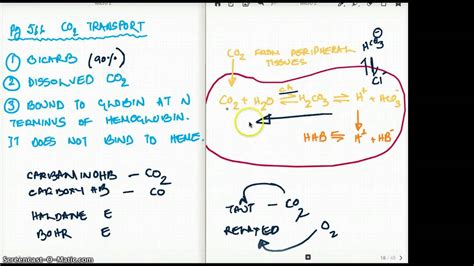 Pg 566 CO2 TRANSPORT
① BICARB (90%)
② DISSOLVED CO2
③ BOUND TO GLOBIN AT N
TERMINUS OF HEMOGLOBIN.
IT DOES NOT BIND TO HEME.
CARBAMINOHB - CO2
CARBOXYHB - CO
HALDANE E
BOHR E
CO2 FROM PERIPHERAL
TISSUES
HCO3-
Cl-
CO2 + H2O ⇌ H2CO3 ⇌ H+ + HCO3-
CA
HHB ⇌ H+ + HB-
TAUT - CO2
RELAXED
O2
Screencast-O-Matic.com